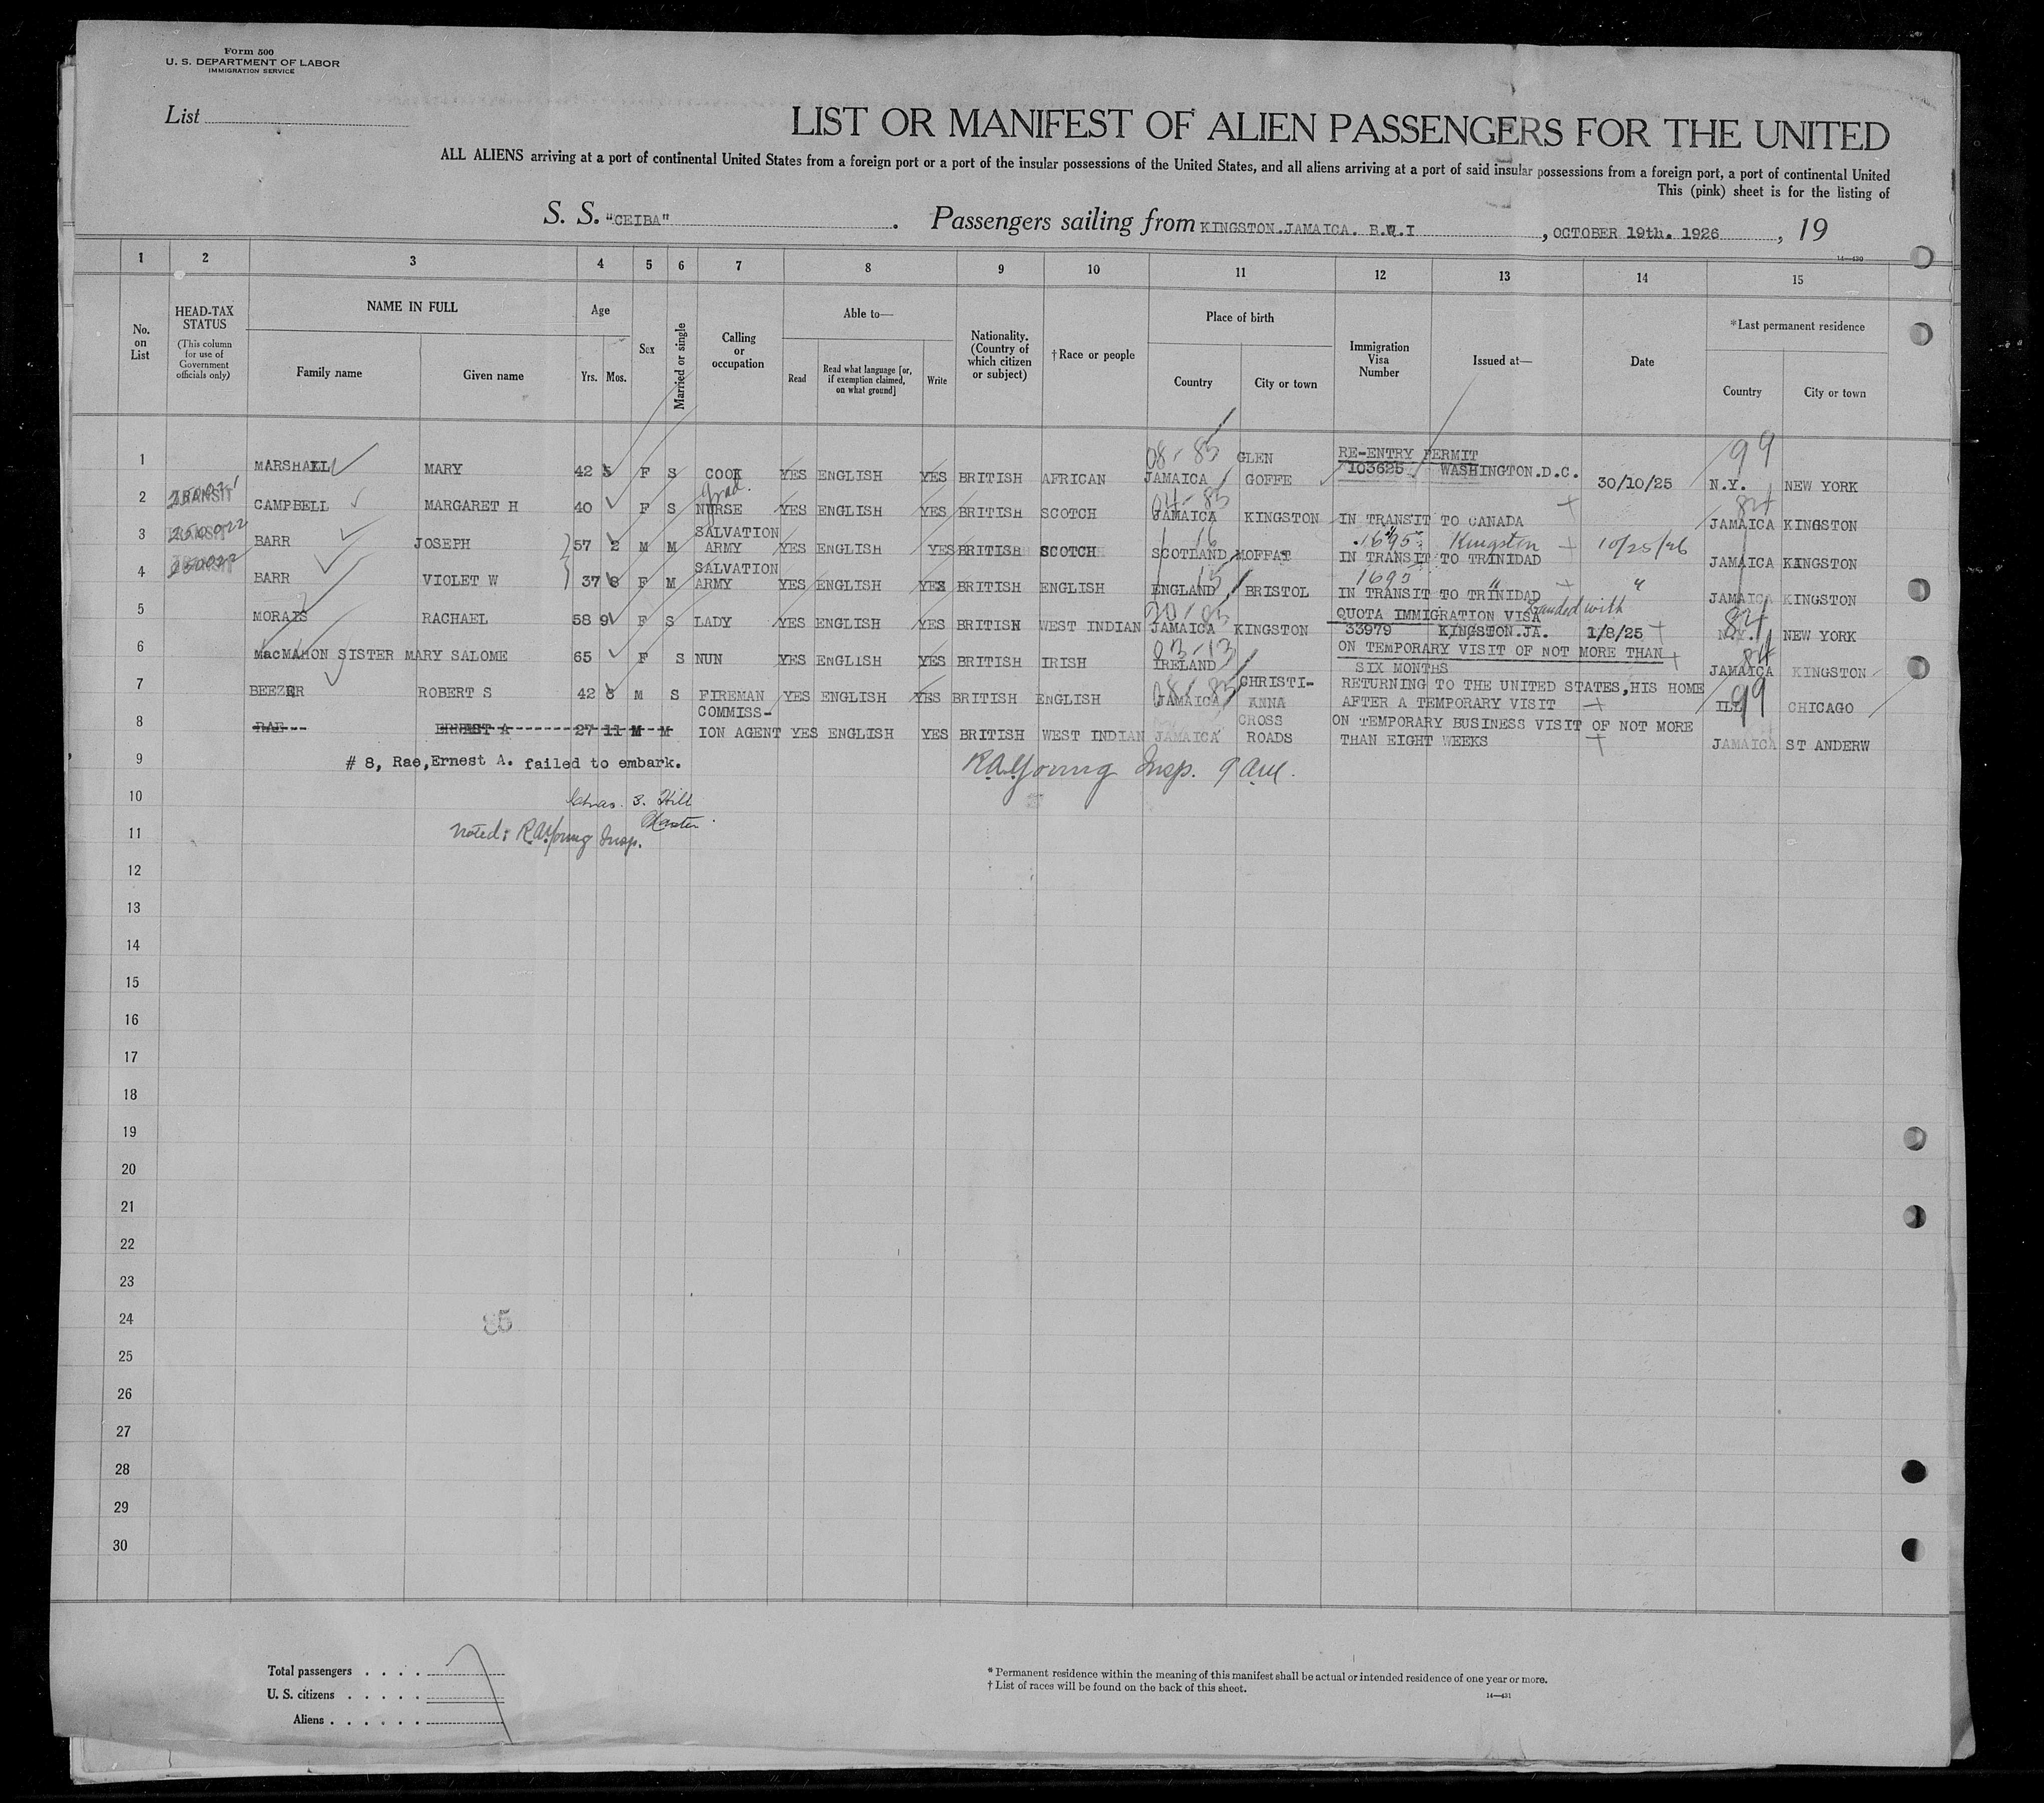 Form 500
U. S. DEPARTMENT OF LABOR
IMMIGRATION SERVICE
List
LIST OR MANIFEST OF ALIEN PASSENGERS FOR THE UNITED
ALL ALIENS arriving at a port of continental United States from a foreign port or a port of the insular possessions of the United States, and all aliens arriving at a port of said insular possessions from a foreign port, a port of continental United
This (pink) sheet is for the listing of
S. S. "CEIBA" . Passengers sailing from KINGSTON.JAMAICA. B.W.I , OCTOBER 19th. 1926 , 19
14—430
1 2 3 4 5 6 7 8 9 10 11 12 13 14 15
No. on List
HEAD-TAX STATUS
(This column for use of Government officials only)
NAME IN FULL
Family name Given name
Age
Yrs. Mos.
Sex
Married or single
Calling or occupation
Able to—
Read Read what language [or, if exemption claimed, on what ground] Write
Nationality. (Country of which citizen or subject)
†Race or people
Place of birth
Country City or town
Immigration Visa Number
Issued at—
Date
*Last permanent residence
Country City or town
1 MARSHALL MARY 42 5 F S COOK YES ENGLISH YES BRITISH AFRICAN 08-85 JAMAICA GLEN GOFFE RE-ENTRY PERMIT 103625 WASHINGTON.D.C. 30/10/25 99 N.Y. NEW YORK
2 TRANSIT CAMPBELL MARGARET H 40 F S Grad. NURSE YES ENGLISH YES BRITISH SCOTCH 04-85 JAMAICA KINGSTON IN TRANSIT TO CANADA 84 JAMAICA KINGSTON
3 BARR JOSEPH 57 2 M M SALVATION ARMY YES ENGLISH YES BRITISH SCOTCH 16 SCOTLAND MOFFAT 1695 Kingston 10/25/26 IN TRANSIT TO TRINIDAD JAMAICA KINGSTON
4 BARR VIOLET W 37 8 F M SALVATION ARMY YES ENGLISH YES BRITISH ENGLISH 15 ENGLAND BRISTOL 1695 " " IN TRANSIT TO TRINIDAD JAMAICA KINGSTON
5 MORAIS RACHAEL 58 9 F S LADY YES ENGLISH YES BRITISH WEST INDIAN JAMAICA KINGSTON QUOTA IMMIGRATION VISA 33979 KINGSTON.JA. 1/8/25 84 N.Y. NEW YORK
6 MacMAHON SISTER MARY SALOME 65 F S NUN YES ENGLISH YES BRITISH IRISH 03-13 IRELAND ON TEMPORARY VISIT OF NOT MORE THAN SIX MONTHS 84 JAMAICA KINGSTON
7 BEEZER ROBERT S 42 8 M S FIREMAN YES ENGLISH YES BRITISH ENGLISH 08-85 JAMAICA CHRISTI-ANNA RETURNING TO THE UNITED STATES,HIS HOME AFTER A TEMPORARY VISIT 99 ILL CHICAGO
8 RAE ERNEST A 27 11 M M COMMISS-ION AGENT YES ENGLISH YES BRITISH WEST INDIAN JAMAICA CROSS ROADS ON TEMPORARY BUSINESS VISIT OF NOT MORE THAN EIGHT WEEKS JAMAICA ST ANDERW
9 # 8, Rae,Ernest A. failed to embark. R.A.Young Insp.
10 Chas. B. Hill
Master.
11 Noted: R.A.Young Insp.
12
13
14
15
16
17
18
19
20
21
22
23
24 85
25
26
27
28
29
30
Total passengers . . . .
U. S. citizens . . . . .
Aliens . . . . . .
* Permanent residence within the meaning of this manifest shall be actual or intended residence of one year or more.
† List of races will be found on the back of this sheet.
14—431